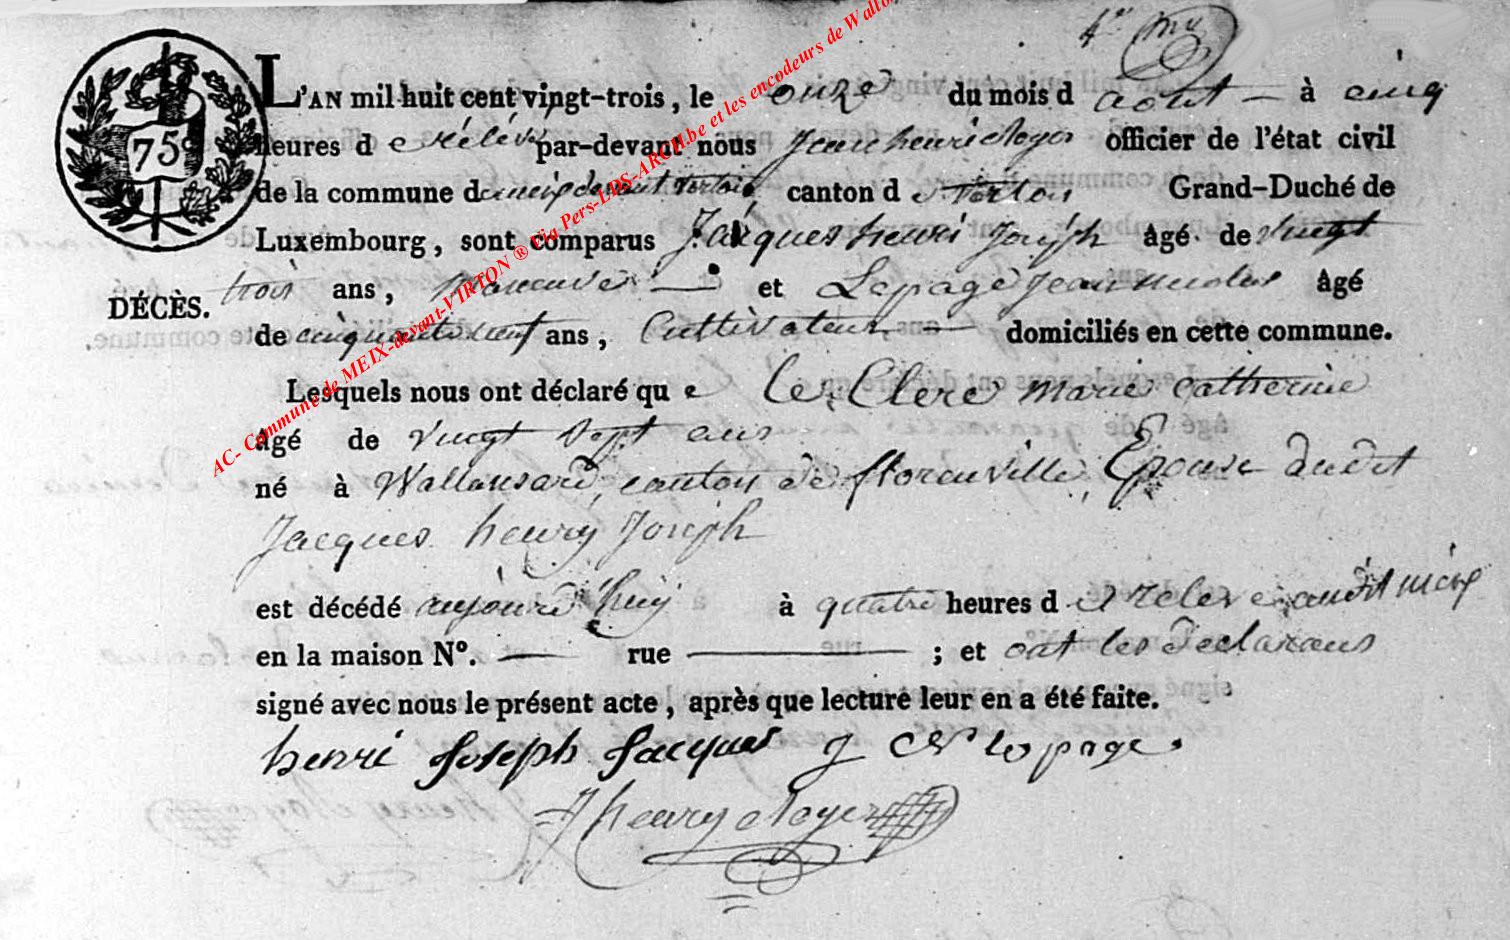 4.e
75
L'AN mil huit cent vingt-trois, le onze du mois d août à cinq
heures d e rélévé par-devant nous Jean henri Noyer officier de l'état civil
de la commune de meix devant virton canton d e virton Grand-Duché de
Luxembourg, sont comparus Jacques henri Joseph âgé de vingt
trois ans, Maneuvre et Lepage Jean nicolas âgé
DÉCÈS.
de cinquante neuf ans, Cultivateur domiciliés en cette commune.
Lesquels nous ont déclaré qu e le Clerc marie catherine
âgé de vingt sept ans
né à Wallansard, canton de florenville, Epouse dudit
Jacques henry Joseph
est décédé aujourd'huy à quatre heures d e relevé audit meix
en la maison N°. — rue — ; et ont les declarans
signé avec nous le présent acte, après que lecture leur en a été faite.
henri Joseph Jacques J N lepage.
J henry Noyer
AC- Commune de MEIX-devant-VIRTON ® Via Pers-LDS-ARCH.be et les encodeurs de Wallo